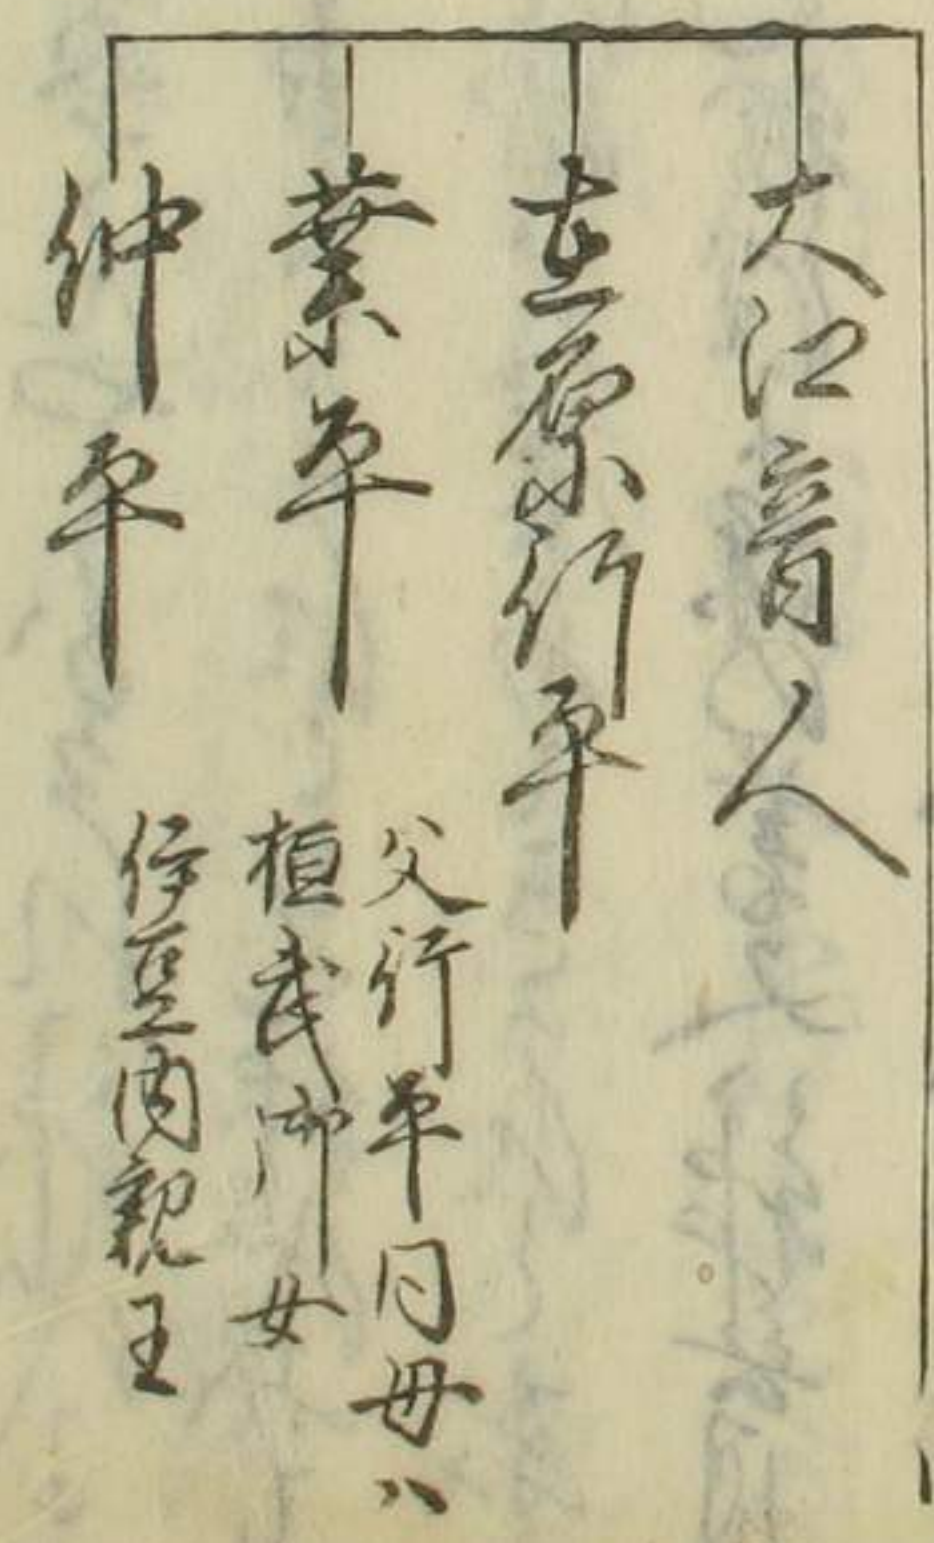 大江音人
在原行平
業平
父行平同母ハ
桓武御女
伊豆内親王
仲平